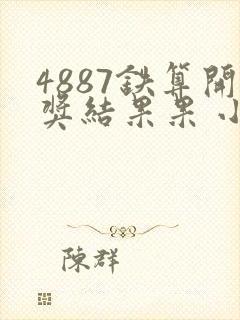 4887鉄算開
奖結果果小
陳群